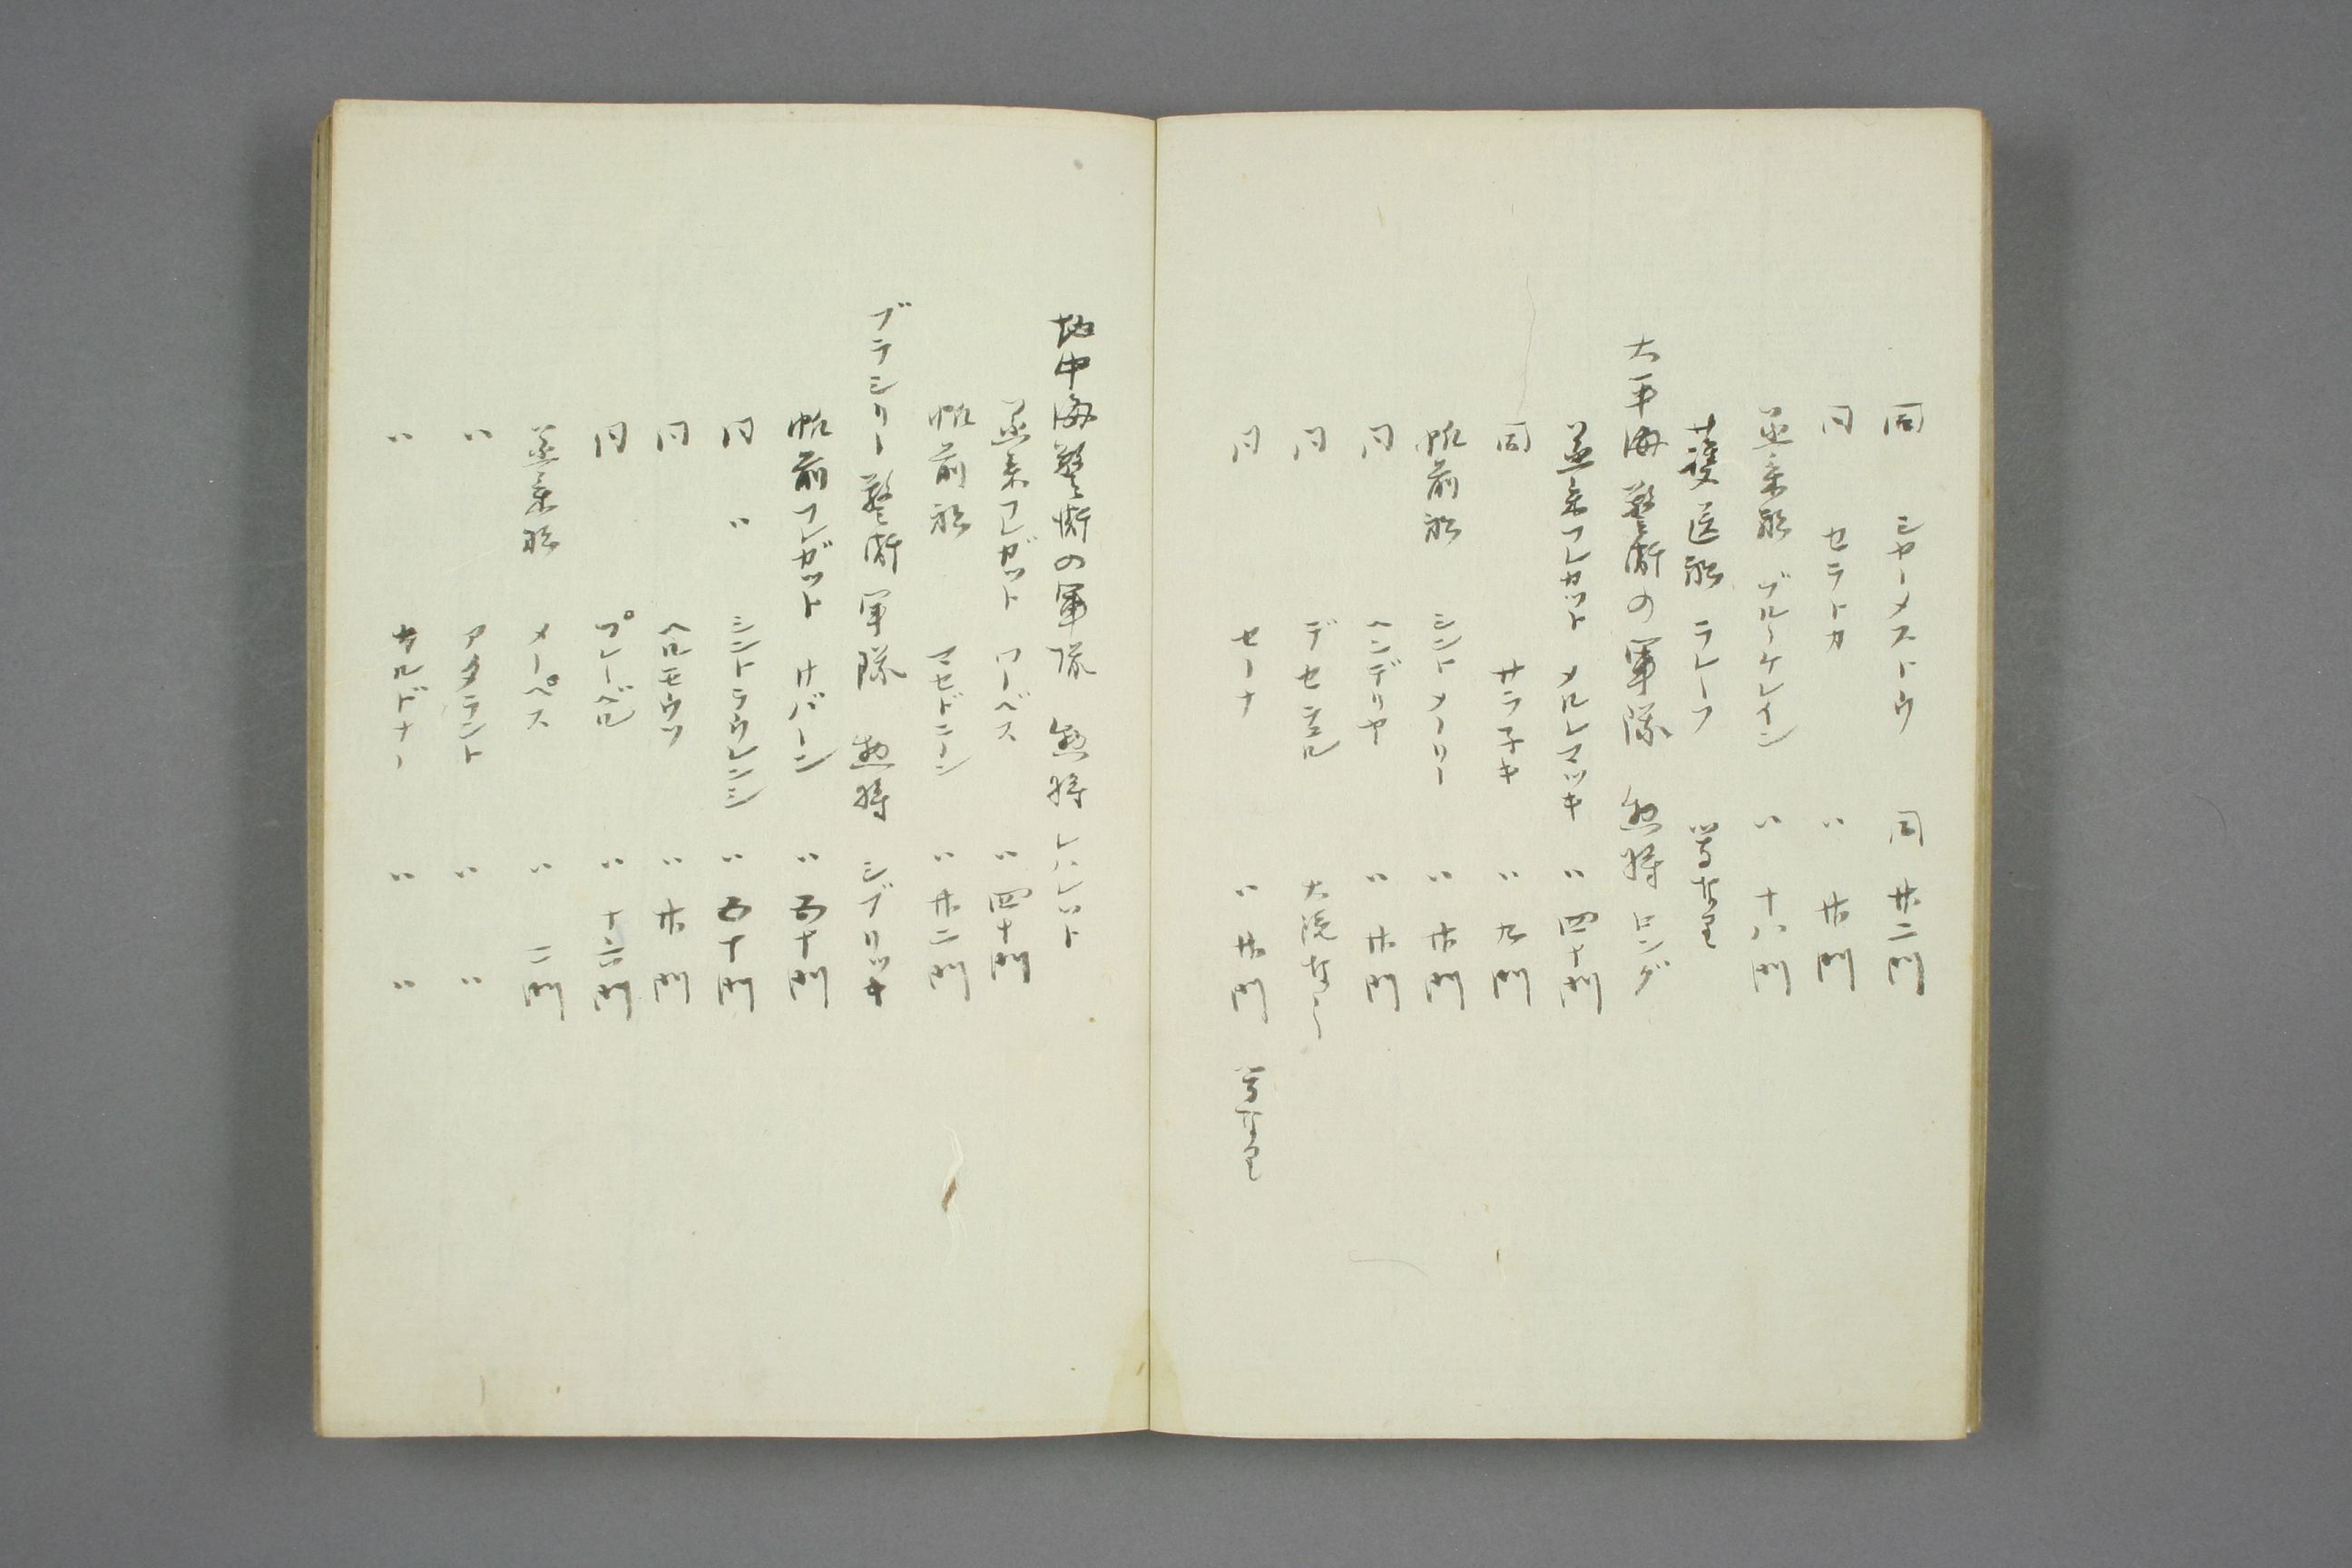 同 シヤーメストウ 同 廿二門
同 セラトガ 〃 廿門
蒸氣船 ブルーケレイン 〃 十八門
護送船 ラレーフ
大平海警衛の軍隊 惣将 ロング
蒸氣フレカット メルレマッキ 〃 四十門
同 サラナキ 〃 九門
帆前船 シントメーリー 〃 廿門
同 ヘンデリヤ 〃 廿門
同 デセーテュル 大砲なし
同 セーナ 〃 廿門
地中海警衛の軍隊 惣将 レハレット
蒸氣フレガット ワーベス 〃 四十門
帆前船 マセドニーン 〃 廿二門
ブラシリー警衛軍隊 惣将 シブリッキ
帆前フレガット サバーン 〃 五十門
同 〃 シントラウレンシ 〃 五十門
同 ヘルモウツ 〃 廿門
同 プレーベル 〃 十六門
蒸氣船 メーペス 〃 二門
〃 アタラント 〃 〃
〃 カルドナー 〃 〃